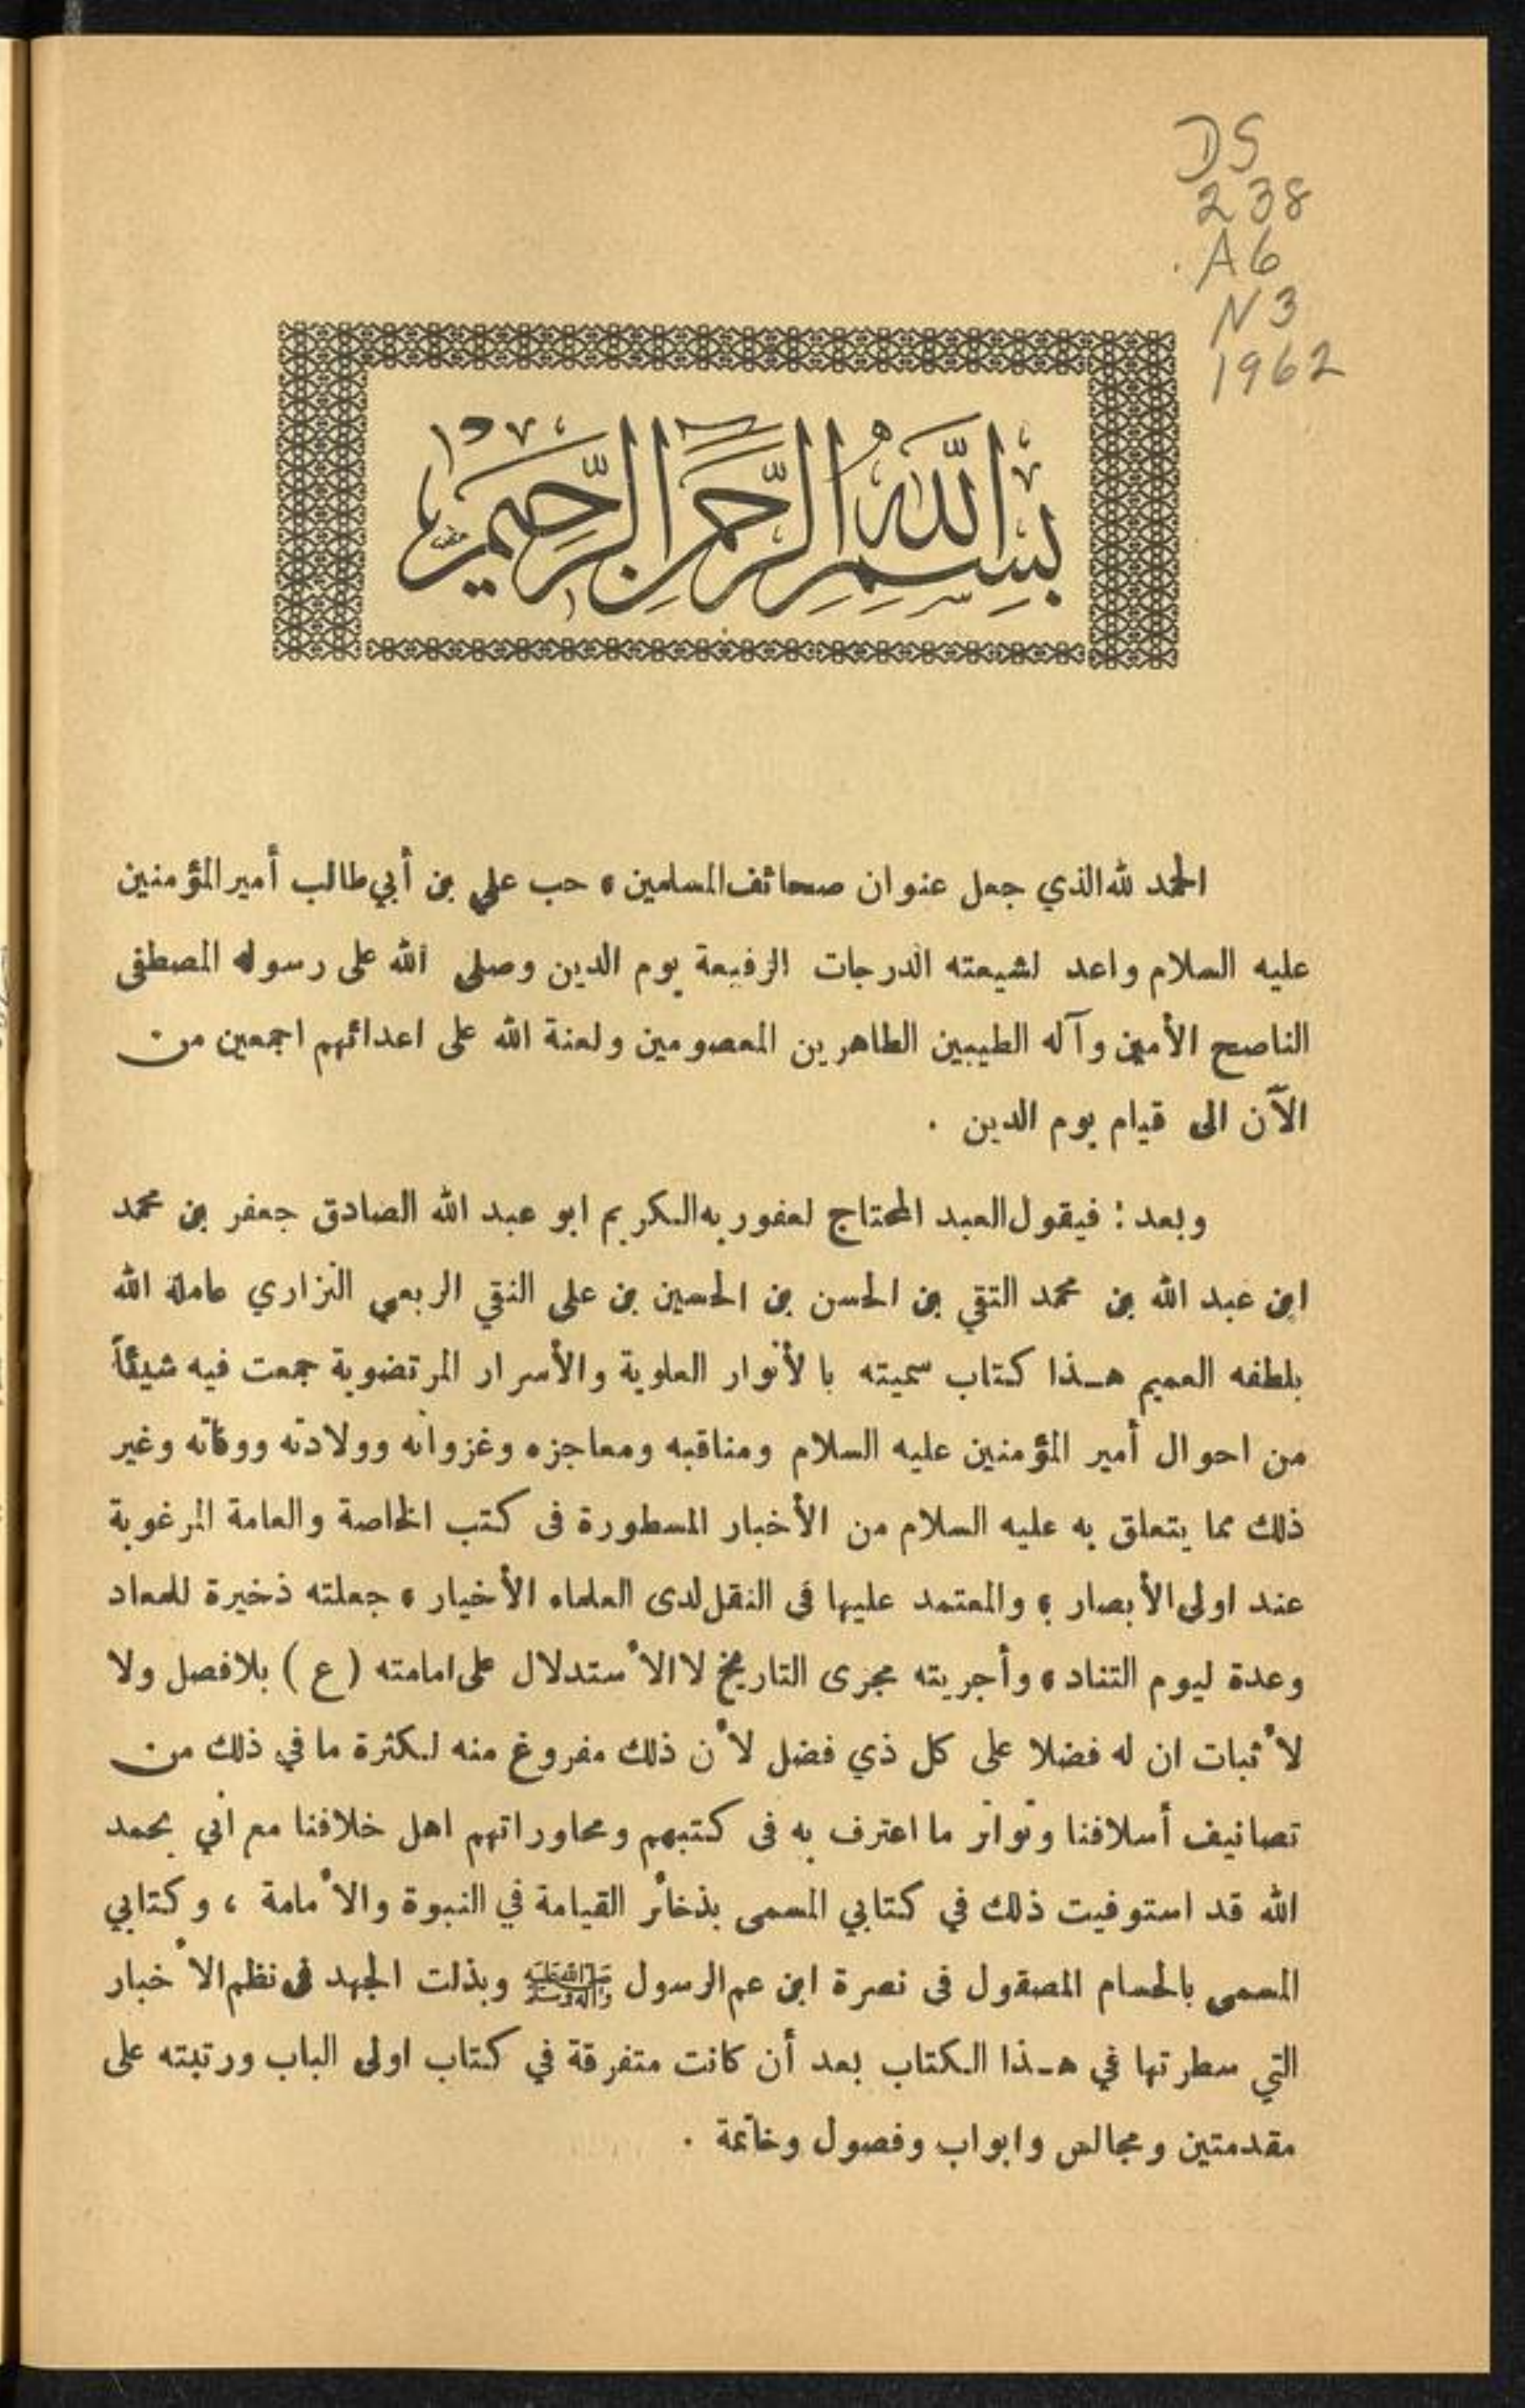 DS
238
.A6
N3
1962
بِسْمِ اللّٰهِ الرَّحْمٰنِ الرَّحِيْمِ
الحمد لله الذي جعل عنوان صحائف المسلمين ، حب علي بن أبي طالب أمير المؤمنين
عليه السلام واعد لشيعته الدرجات الرفيعة يوم الدين وصلى الله على رسوله المصطفى
الناصح الأمين وآله الطيبين الطاهرين المعصومين ولعنة الله على اعدائهم اجمعين من
الآن الى قيام يوم الدين .
وبعد : فيقول العبد المحتاج لعفو ربه الكريم ابو عبد الله الصادق جعفر بن محمد
ابن عبد الله بن محمد التقي بن الحسن بن الحسين بن على النقي الربعي النزاري عامله الله
بلطفه العميم هـذا كتاب سميته بالأنوار العلوية والأسرار المرتضوية جمعت فيه شيئاً
من احوال أمير المؤمنين عليه السلام ومناقبه ومعاجزه وغزواته وولادته ووفاته وغير
ذلك مما يتعلق به عليه السلام من الأخبار المسطورة فى كتب الخاصة والعامة المرغوبة
عند اولى الأبصار ، والمعتمد عليها فى النقل لدى العلماء الأخيار ، جعلته ذخيرة للمعاد
وعدة ليوم التناد ، وأجريته مجرى التاريخ لا الأستدلال على امامته ( ع ) بلا فصل ولا
لأثبات ان له فضلا على كل ذي فضل لأن ذلك مفروغ منه لكثرة ما في ذلك من
تصانيف أسلافنا وتواتر ما اعترف به فى كتبهم ومحاوراتهم اهل خلافنا مع أني بحمد
الله قد استوفيت ذلك في كتابي المسمى بذخائر القيامة في النبوة والأمامة ، وكتابي
المسمى بالحسام المصقول فى نصرة ابن عم الرسول صلى الله عليه وآله وسلم وبذلت الجهد فى نظم الأخبار
التي سطرتها في هـذا الكتاب بعد أن كانت متفرقة في كتاب اولى الباب ورتبته على
مقدمتين ومجالس وابواب وفصول وخاتمة .